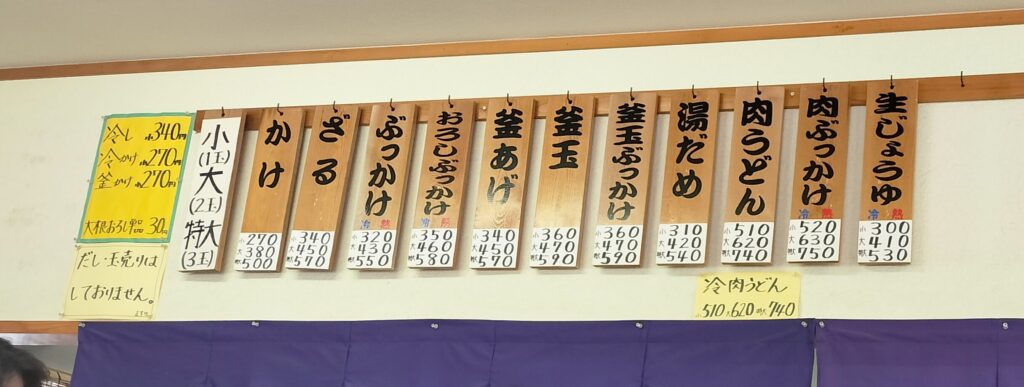 冷し 小340円
冷かけ 小270円
釜かけ 小270円
大根おろし単品 30円
だし・玉売りは
しておりません。
小
(1玉)
大
(2玉)
特大
(3玉)
かけ
小 270
大 380
特大 500
ざる
小 340
大 450
特大 570
ぶっかけ
冷 熱
小 320
大 430
特大 550
おろしぶっかけ
冷 熱
小 350
大 460
特大 580
釜あげ
小 340
大 450
特大 570
釜玉
小 360
大 470
特大 590
釜玉ぶっかけ
小 360
大 470
特大 590
湯だめ
小 310
大 420
特大 540
肉うどん
小 510
大 620
特大 740
肉ぶっかけ
冷 熱
小 520
大 630
特大 750
生じょうゆ
冷 熱
小 300
大 410
特大 530
冷肉うどん
小510 大620 特大740